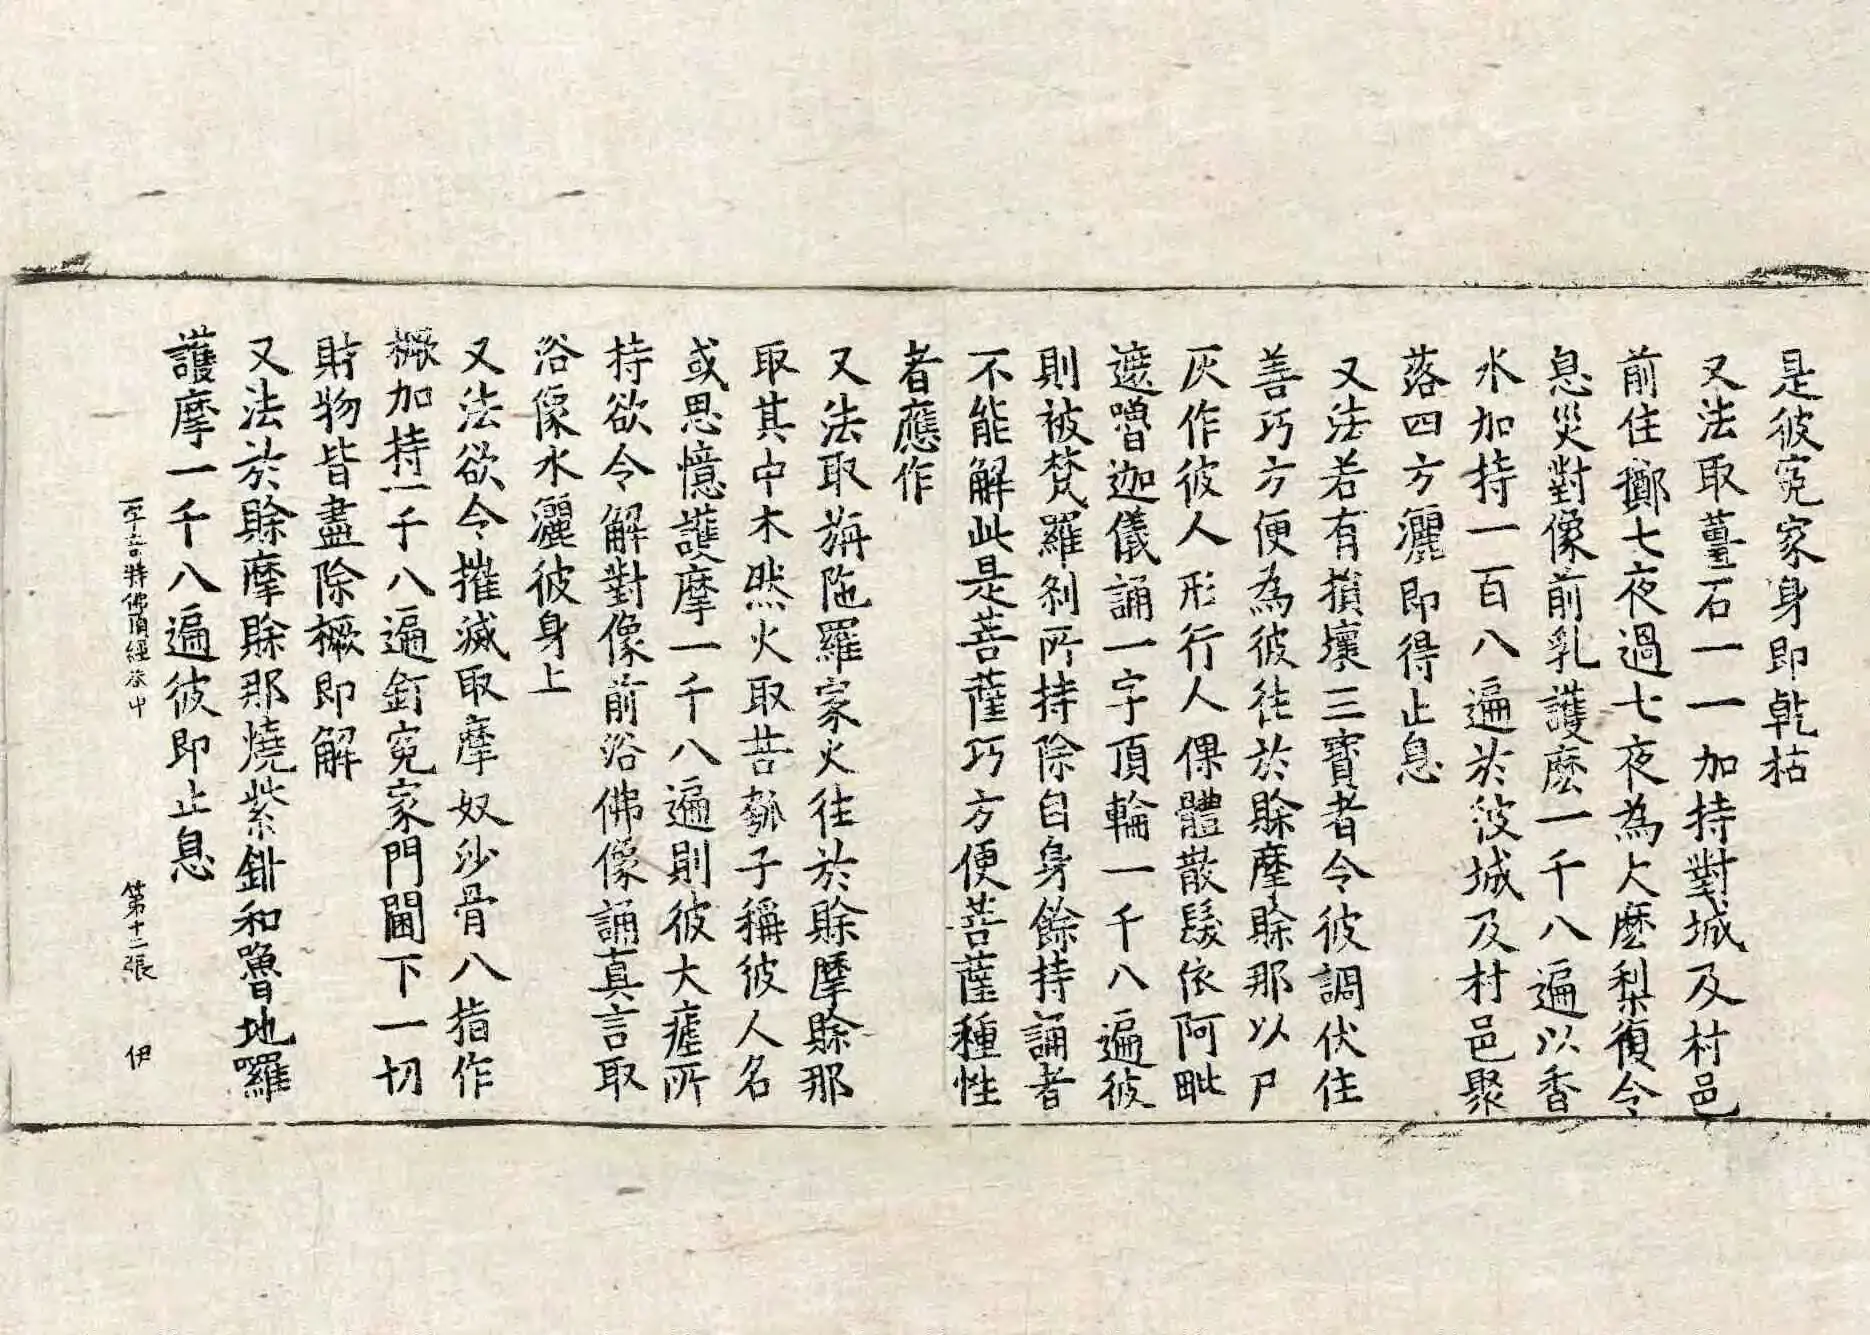 是彼寃家身即乹枯
又法取薑石一一加持對城及村邑
前住擲七夜過七夜為大麼梨復令
息災對像前乳護麼一千八遍以香
水加持一百八遍於彼城及村邑聚
落四方灑即得止息
又法若有損壞三寶者令彼調伏住
善巧方便為彼往於賒摩賒那以尸
灰作彼人形行人倮體散髮依阿毗
遮嚕迦儀誦一字頂輪一千八遍彼
則被梵羅剎所持除自身餘持誦者
不能解此是菩薩巧方便菩薩種性
者應作
又法取旃陁羅家火往於賒摩賒那
取其中木然火取苦瓠子稱彼人名
或思憶護摩一千八遍則彼大瘧所
持欲令解對像前浴佛像誦真言取
浴像水灑彼身上
又法欲令摧滅取摩奴沙骨八指作
橛加持一千八遍釘寃家門閫下一切
財物皆盡除橛即解
又法於賒摩賒那燒紫𨥥和嚕地囉
護摩一千八遍彼即止息
一字奇特佛頂經卷中 第十二張 伊